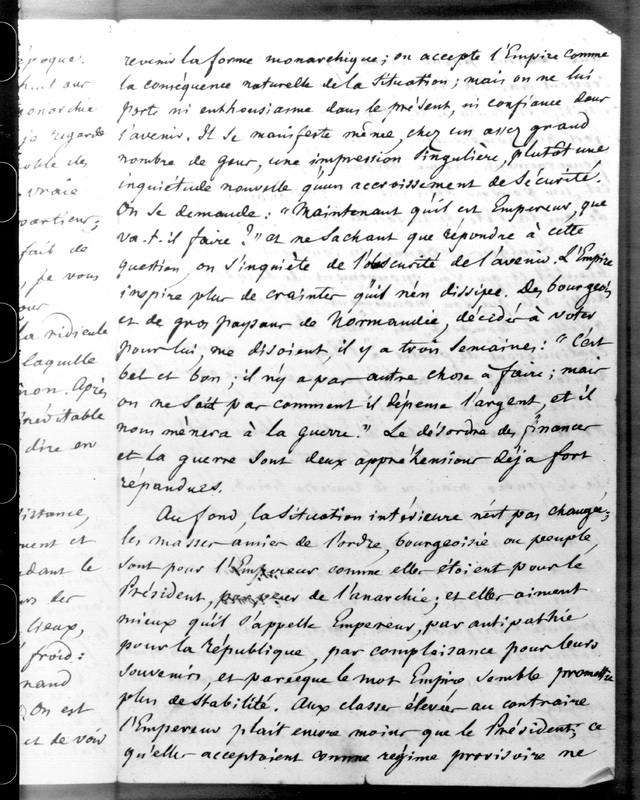 époque.
monarchie
je regarde
vraie
fait de
, je vous
ridicule
laquelle
non. Après
inévitable
dire en
ment et
dant le
lieux,
froid:
On est
et de voir
revenir la forme monarchique; on accepte l'Empire comme
la conséquence naturelle de la situation; mais on ne lui
porte ni enthousiasme dans le présent, ni confiance dans
l'avenir. Il se manifeste même, chez un assez grand
nombre de gens, une impression singulière, plutôt une
inquiétude nouvelle qu'un accroissement de sécurité.
On se demande: "Maintenant qu'il est Empereur, que
va-t-il faire?" et ne sachant que répondre à cette
question, on s'inquiète de l'obscurité de l'avenir. L'Empire
inspire plus de craintes qu'il n'en dissipe. Des bourgeois
et de gros paysans de Normandie, décidés à voter
pour lui, me disoient, il y a trois semaines: "C'est
bel et bon; il n'y a pas autre chose à faire; mais
on ne sait pas comment il dépense l'argent, et il
nous mènera à la guerre." Le désordre des finances
et la guerre sont deux appréhensions déja fort
répandues.
Au fond, la situation intérieure n'est pas changée;
les masses amies de l'ordre, bourgeoisie ou peuple,
sont pour l'Empereur comme elles étoient pour le
Président, par peur de l'anarchie; et elles aiment
mieux qu'il s'appelle Empereur, par antipathie
pour la république, par complaisance pour leurs
souvenirs, et parceque le mot Empire semble promettre
plus de stabilité. Aux classes élevées au contraire
l'Empereur plait encore moins que le Président; ce
qu'elles acceptoient comme régime provisoire ne